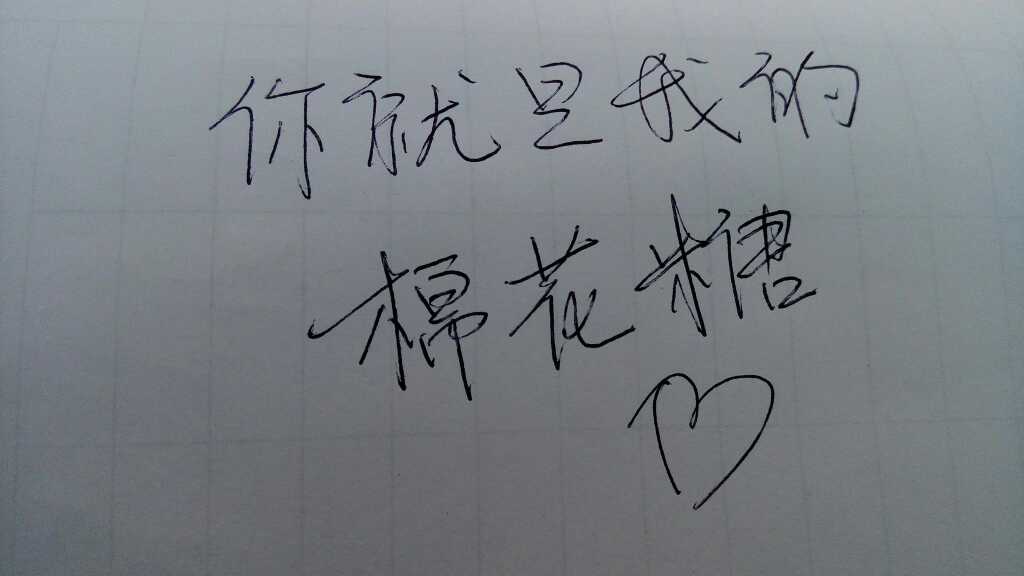 你就是我的
棉花糖